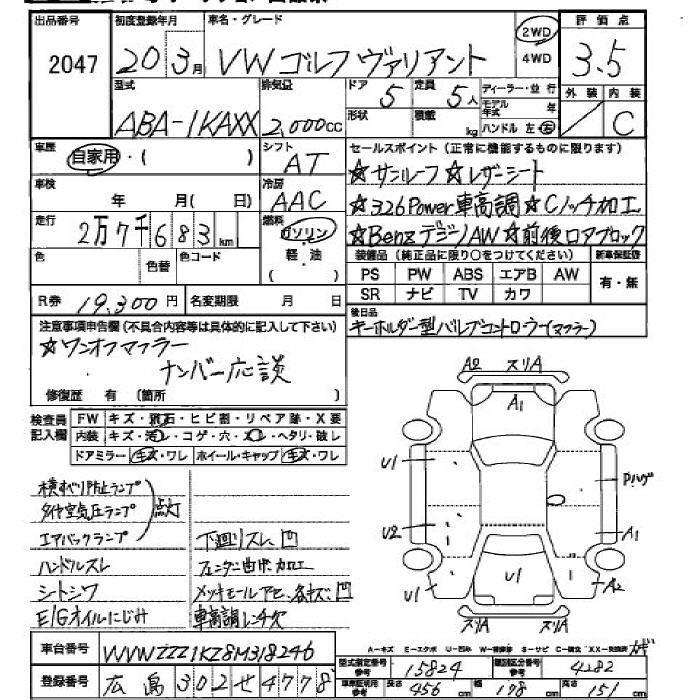 出品番号 初度登録年月 車名・グレード 2WD 評価点
2047 20 3月 VWゴルフヴァリアント 4WD 3.5
型式 排気量 ドア 5 定員 5人 ディーラー・並行 外装 内装
ABA-1KAXX 2,000cc 形状 積載 kg モデル年式 年 ハンドル 左 右 C
車歴 自家用・( ) シフト AT セールスポイント(正常に機能するものに限ります)
☆サンルーフ ☆レザーシート
車検 年 月( 日) 冷房 AAC ☆326Power車高調☆Cノッチ加工
走行 2万7千683km 燃料 ガソリン ☆BenzデジノAW☆前後ロアブロック
色 色替 色コード 軽・油 装備品(純正品に限り○をつけてください) 新車保証書
PS PW ABS エアB AW 有・無
R券 19,300円 名変期限 月 日 SR ナビ TV カワ
注意事項申告欄(不具合内容等は具体的に記入して下さい) 後日品
キーホルダー型バルブコントローラー(マフラー)
☆ワンオフマフラー
ナンバー応談
修復歴 有 〔箇所 〕
検査員記入欄 FW キズ・飛石・ヒビ割・リペア跡・X要
内装 キズ・汚レ・コゲ・穴・スレ・ヘタリ・破レ
ドアミラー キズ・ワレ ホイール・キャップ キズ・ワレ
横すべり防止ランプ
タイヤ空気圧ランプ 点灯
エアバックランプ 下廻りスレ、凹
ハンドルスレ フェンダー曲ゲ加工
シトシワ メッキモールアセ、各キズ、凹
E/Gオイルにじみ 車高調レンチ欠
A2 スリA
A1
U1
Pハゲ
U2
A1
U1
U1
A2
スリA スリA
A-キズ E-エクボ U-凹み W-補修跡 S-サビ C-腐食 XX-交換済
車台番号 WVWZZZ1KZ8M318246
型式指定番号 参考 15824 類別区分番号 参考 4282
登録番号 広島302せ4778
車証証明用 参考 長さ 456cm 幅 178cm 高さ 151cm